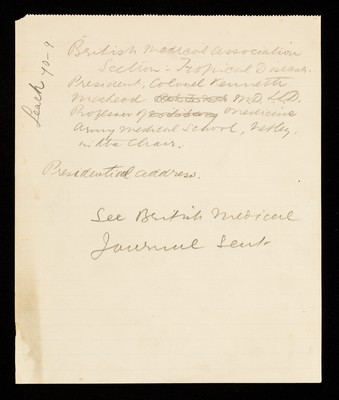 Leach 40-9
British Medical Association
Section - Tropical Diseases.
President, Colonel Kenneth
Macleod M.D. LL.D.
Professor of Medicine
Army Medical School, Netley,
in the Chair.
Presidential address.
See British Medical
Journal Sent